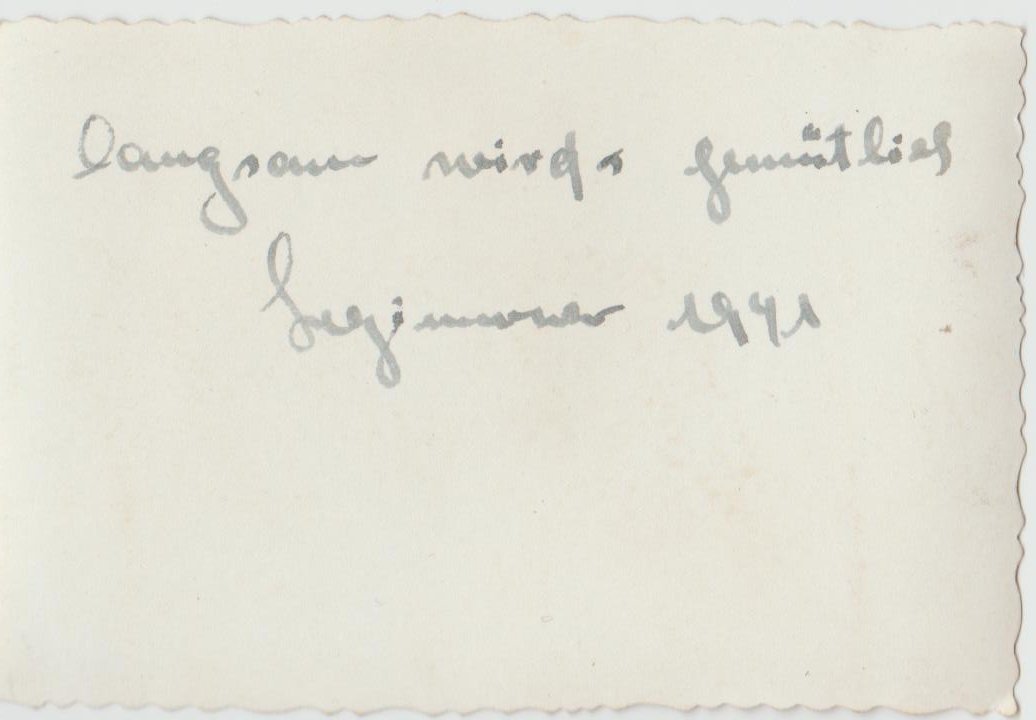 langsam wird's gemütlich
1941